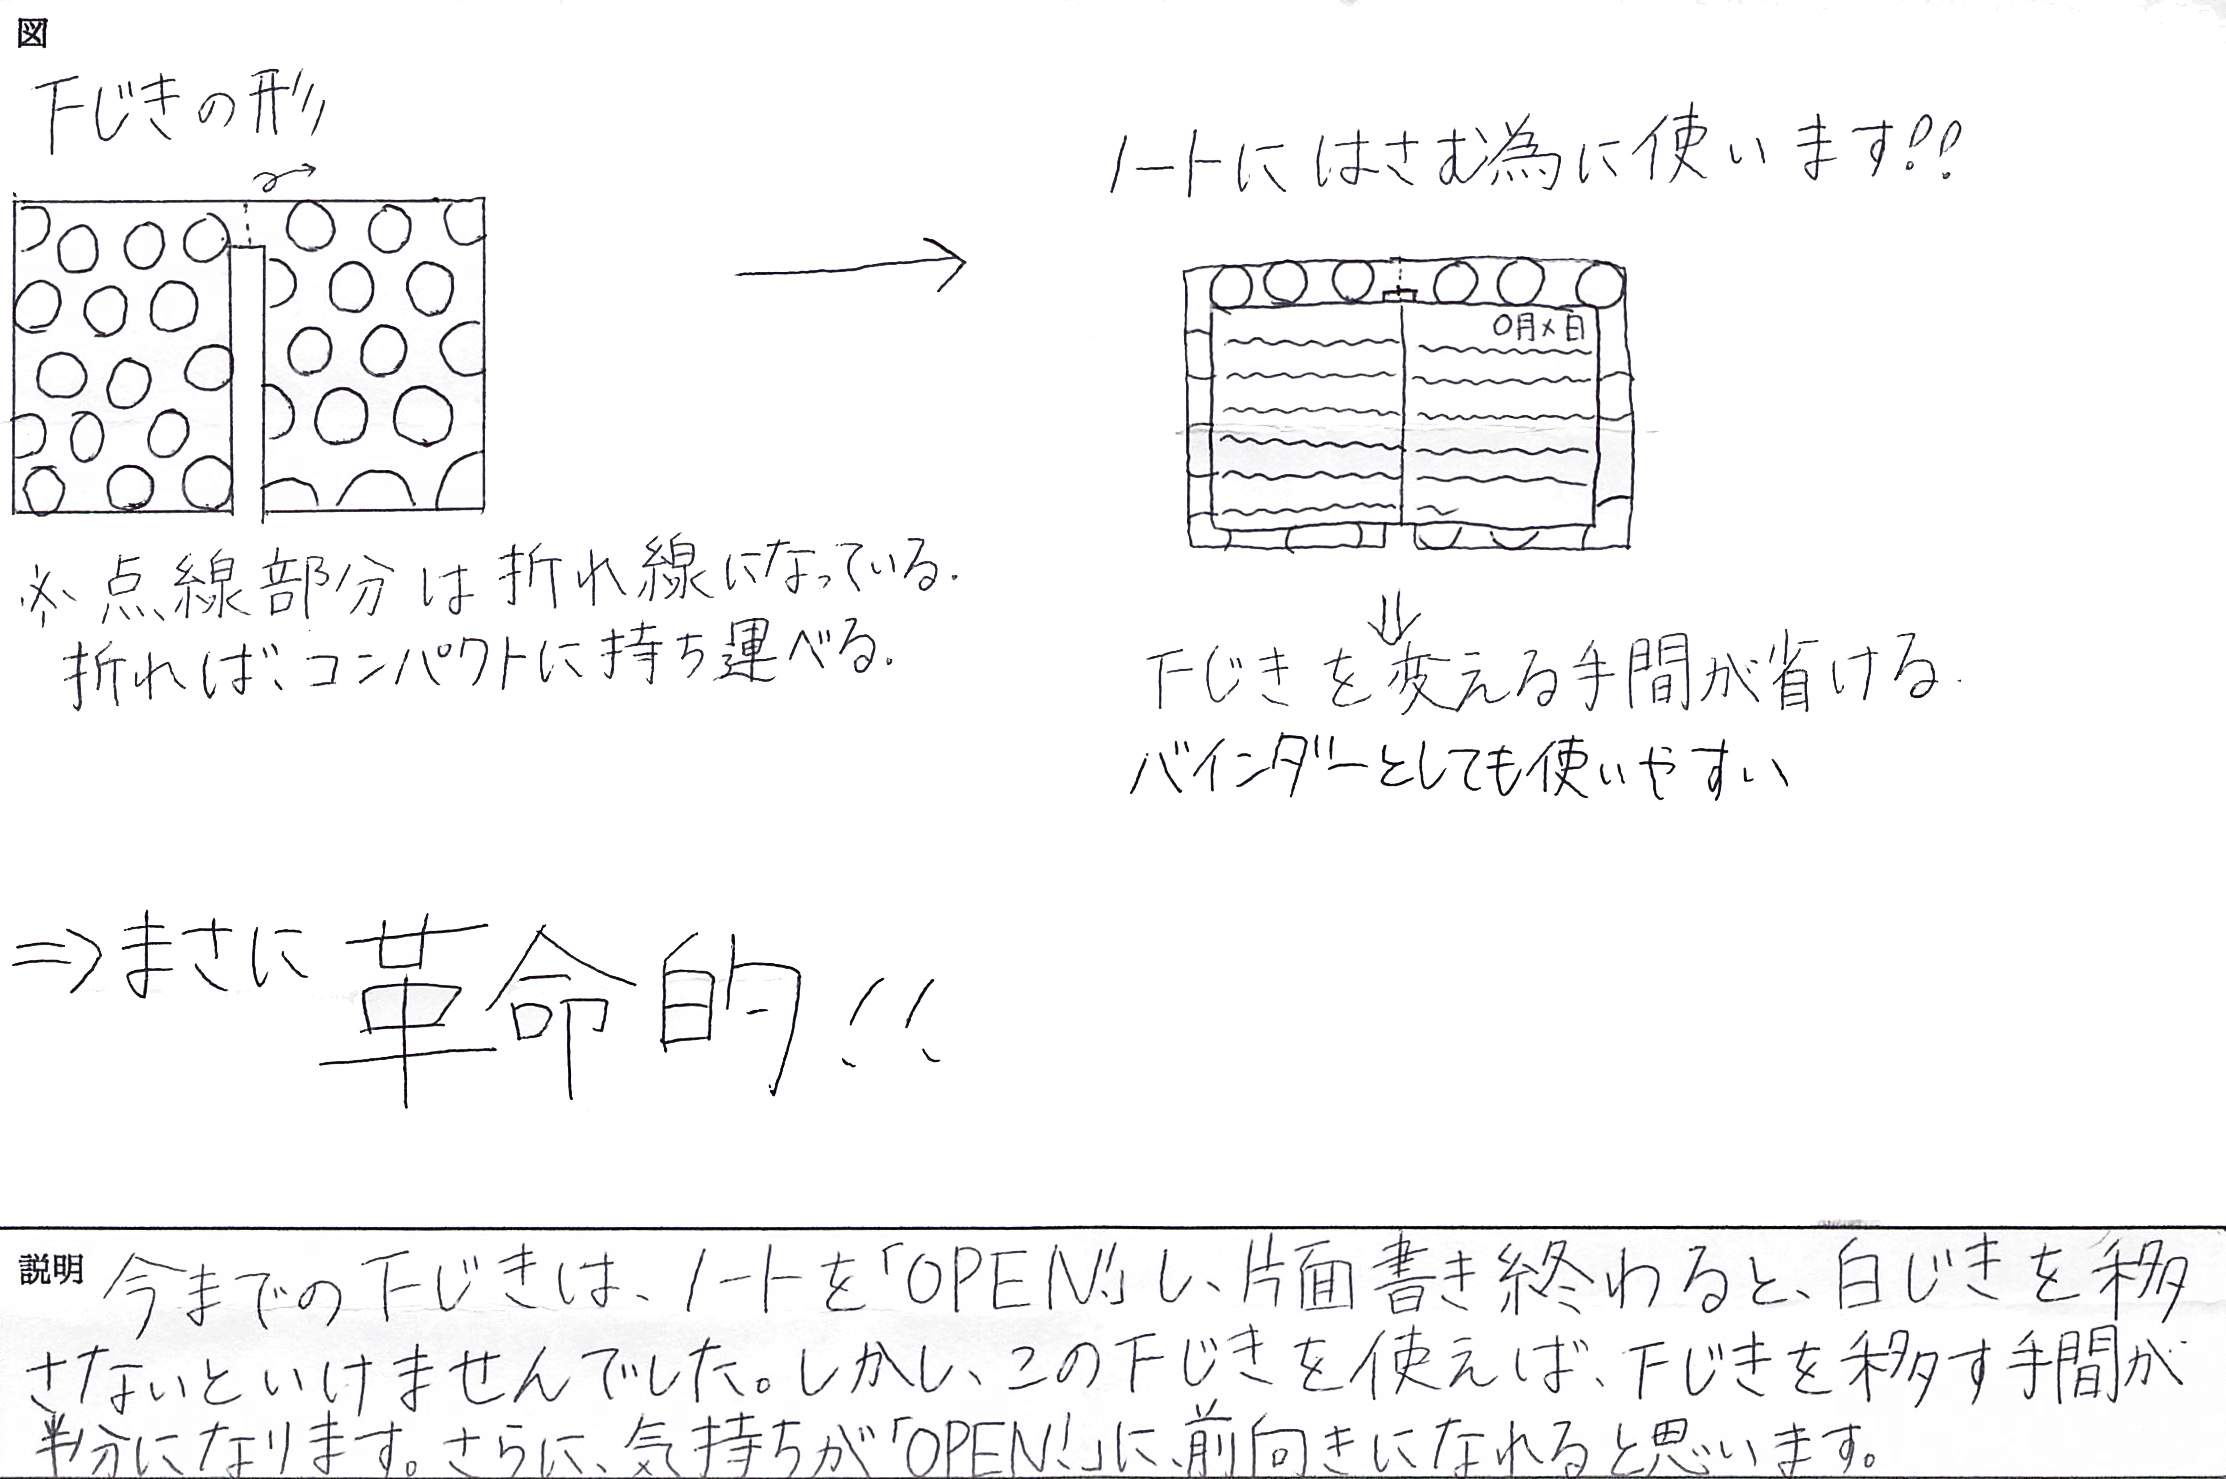 図
下じきの形
ノートにはさむ為に使います!!
〇月×日
※点線部分は折れ線になっている.
折れば、コンパクトに持ち運べる.
下じきを変える手間が省ける.
バインダーとしても使いやすい
⇒まさに革命的!!
説明
今までの下じきは、ノートを「OPEN!」し、片面書き終わると、白じきを移
さないといけませんでした。しかし、この下じきを使えば、下じきを移す手間が
半分になります。さらに、気持ちが「OPEN!」に、前向きになれると思います。